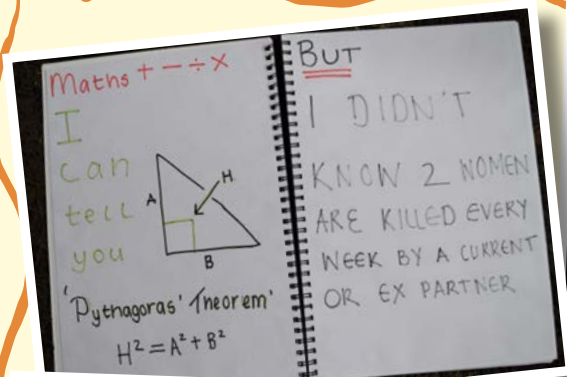 Maths + - ÷ x
I
can
tell
you
A
H
B
'Pythagoras' Theorem'
H² = A² + B²
BUT
I DIDN'T
KNOW 2 WOMEN
ARE KILLED EVERY
WEEK BY A CURRENT
OR EX PARTNER